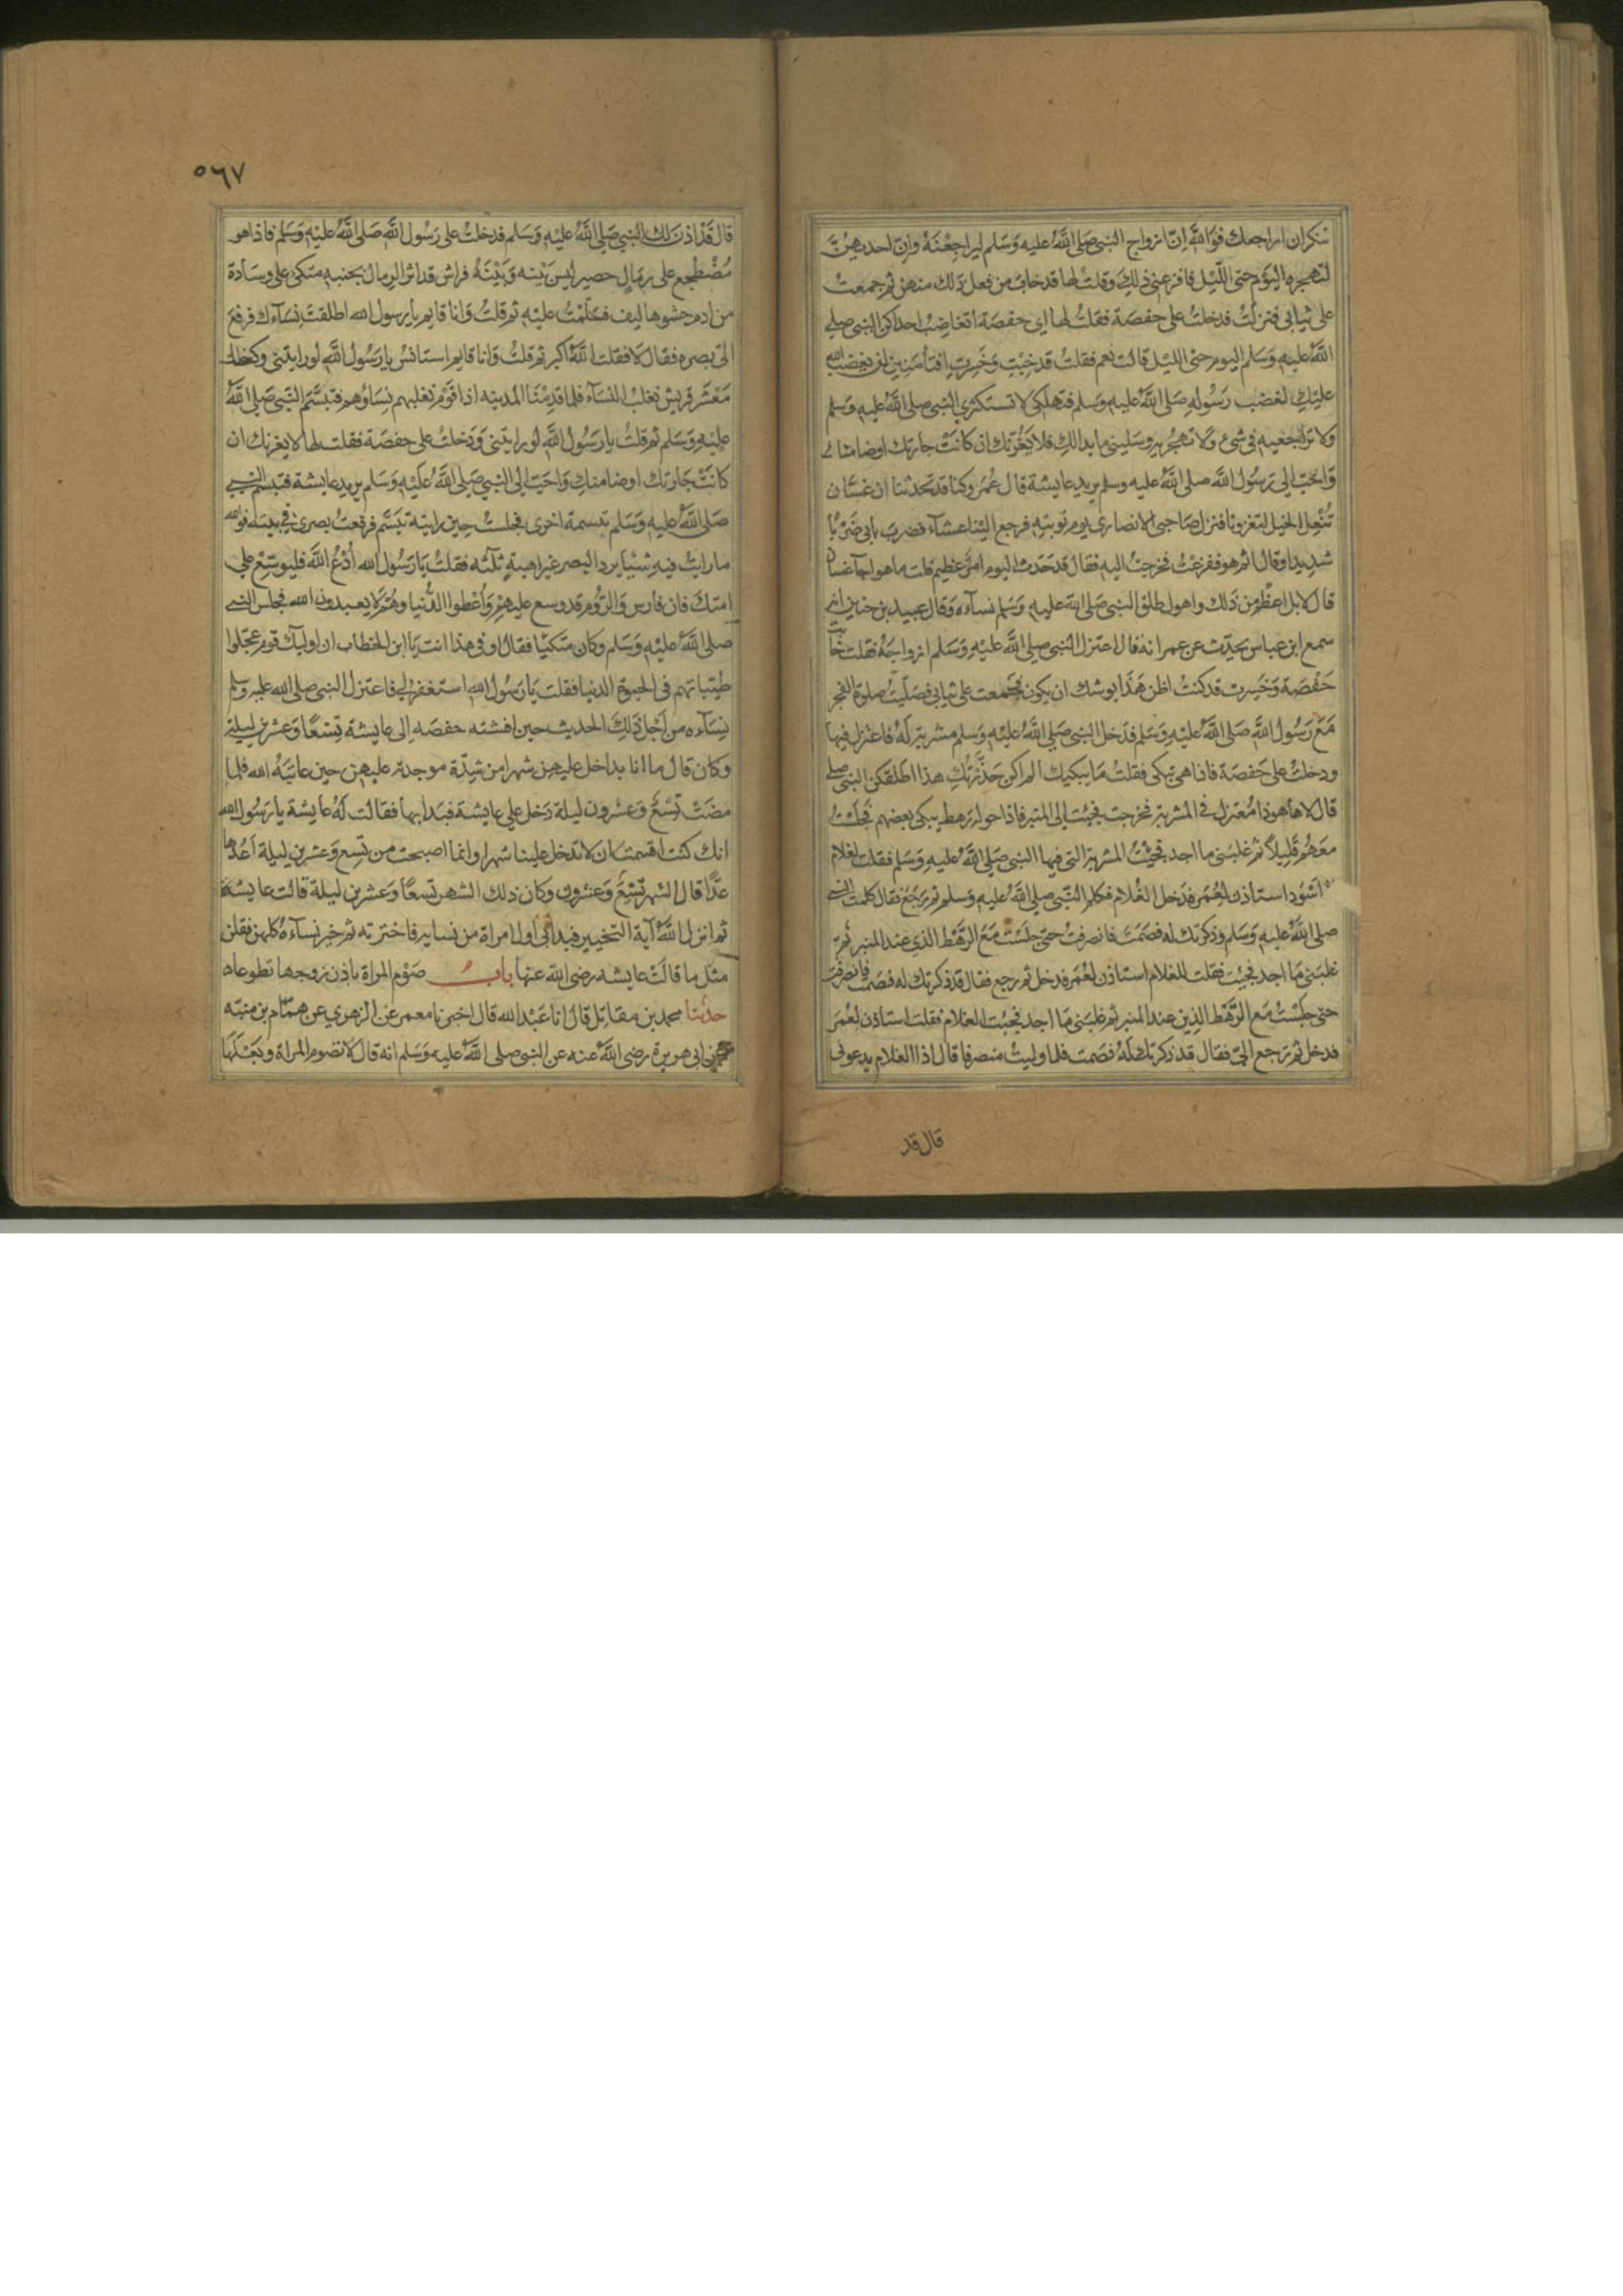 تنكر ان اراجعك فوالله ان ازواج النبي صلى الله عليه وسلم ليراجعنه وان احديهن
لتهجره اليوم حتى الليل فافزعني ذلك وقلت لها قد خاب من فعل ذلك منهن ثم جمعت
على ثيابي فنزلت فدخلت على حفصة فقلت لها اي حفصة اتغاضب احداكن النبي صلى
الله عليه وسلم اليوم حتى الليل قالت نعم فقلت قد خبت وخسرت افتأمنين ان يغضب الله
عليك لغضب رسوله صلى الله عليه وسلم فتهلكي لا تستكثري النبي صلى الله عليه وسلم
ولا تراجعيه في شيء ولا تهجريه وسليني ما بدا لك فلا يغرنك ان كانت جارتك اوضا منك
واحب الى رسول الله صلى الله عليه وسلم يريد عايشة قال عمر وكنا قد تحدثنا ان غسان
تنعل الخيل لتغزونا فنزل صاحبي الانصاري يوم نوبته فرجع الينا عشاء فضرب بابي ضربا
شديدا وقال اثم هو ففزعت فخرجت اليه فقال قد حدث اليوم امر عظيم قلت ما هو اجآ غسان
قال لا بل اعظم من ذلك واهول طلق النبي صلى الله عليه وسلم نسآءه وقال عبيد بن حنين
سمع ابن عباس يحدث عن عمر انه قال اعتزل النبي صلى الله عليه وسلم ازواجه فقلت خابت
حفصة وخسرت قد كنت اظن هذا يوشك ان يكون فجمعت على ثيابي فصليت صلوة الفجر
مع رسول الله صلى الله عليه وسلم فدخل النبي صلى الله عليه وسلم مشربة له فاعتزل فيها
ودخلت على حفصة فاذا هي تبكي فقلت ما يبكيك الم اكن حذرتك هذا اطلقكن النبي صلى
قال لا ها هو ذا معتزل في المشربة فخرجت فجئت الى المنبر فاذا حوله رهط يبكي بعضهم فجلست
معهم قليلا ثم غلبني ما اجد فجئت المشربة التي فيها النبي صلى الله عليه وسلم فقلت لغلام
اسود استاذن لعمر فدخل الغلام فكلم النبي صلى الله عليه وسلم ثم رجع فقال كلمت النبي
صلى الله عليه وسلم وذكرتك له فصمت فانصرفت حتى جلست مع الرهط الذي عند المنبر ثم
غلبني ما اجد فجئت فقلت للغلام استاذن لعمر فدخل ثم رجع فقال قد ذكرتك له فصمت فانصرفت
حتى جلست مع الرهط الذين عند المنبر ثم غلبني ما اجد فجئت الغلام فقلت استاذن لعمر
فدخل ثم رجع الي فقال قد ذكرتك له فصمت فلما وليت منصرفا قال اذا الغلام يدعوني
قال قد
٥٦٧
قال قد اذن لك النبي صلى الله عليه وسلم فدخلت على رسول الله صلى الله عليه وسلم فاذا هو
مضطجع على رمال حصير ليس بينه وبينه فراش قد اثر الرمال بجنبه متكئ على وسادة
من ادم حشوها ليف فسلمت عليه ثم قلت وانا قايم يا رسول الله اطلقت نسآءك فرفع
الى بصره فقال لا فقلت الله اكبر ثم قلت وانا قايم استانس يا رسول الله لو رايتني وكنا
معشر قريش نغلب النسآء فلما قدمنا المدينه اذا قوم تغلبهم نساؤهم فتبسم النبي صلى الله
عليه وسلم ثم قلت يا رسول الله لو رايتني ودخلت على حفصة فقلت لها لا يغرنك ان
كانت جارتك اوضا منك واحب الى النبي صلى الله عليه وسلم يريد عايشة فتبسم النبي
صلى الله عليه وسلم تبسمة اخرى فجلست حين رايته تبسم فرفعت بصري في بيته فوالله
ما رايت فيه شيئا يرد البصر غير اهبة ثلثه فقلت يا رسول الله ادع الله فليوسع على
امتك فان فارس والروم قد وسع عليهم واعطوا الدنيا وهم لا يعبدون الله فجلس النبي
صلى الله عليه وسلم وكان متكئا فقال او في هذا انت يا ابن الخطاب ان اوليك قوم عجلوا
طيباتهم في الحيوة الدنيا فقلت يا رسول الله استغفر لي فاعتزل النبي صلى الله عليه وسلم
نسآءه من اجل ذلك الحديث حين افشته حفصه الى عايشة تسعا وعشرين ليلة
وكان قال ما انا بداخل عليهن شهرا من شدة موجدته عليهن حين عاتبه الله فلما
مضت تسع وعشرون ليلة دخل على عايشة فبدا بها فقالت له عايشة يا رسول الله
انك كنت اقسمت ان لا تدخل علينا شهرا وانما اصبحت من تسع وعشرين ليلة اعدها
عدا قال الشهر تسع وعشرون وكان ذلك الشهر تسعا وعشرين ليلة قالت عايشة
ثم انزل الله آية التخيير فبدا بي اول امراة من نسايه فاخترته ثم خير نسآءه كلهن فقلن
مثل ما قالت عايشه رضي الله عنها باب صوم المراة باذن زوجها تطوعا
حدثنا محمد بن مقاتل قال انا عبد الله قال اخبرنا معمر عن الزهري عن همام بن منبه
عن ابي هريرة رضي الله عنه عن النبي صلى الله عليه وسلم انه قال لا تصوم المراة وبعلها